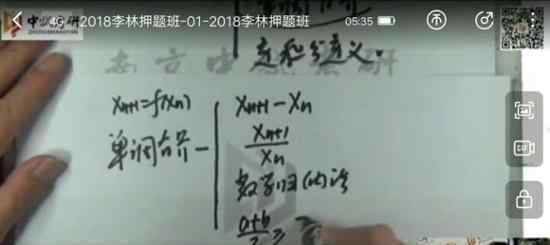 4G
2018李林押题班-01-2018李林押题班
05:35
定积分定义。
Xn+1=f(Xn)
单调有界
Xn+1-Xn
Xn+1
Xn
数学归纳法
a+b
2
≥
GIF